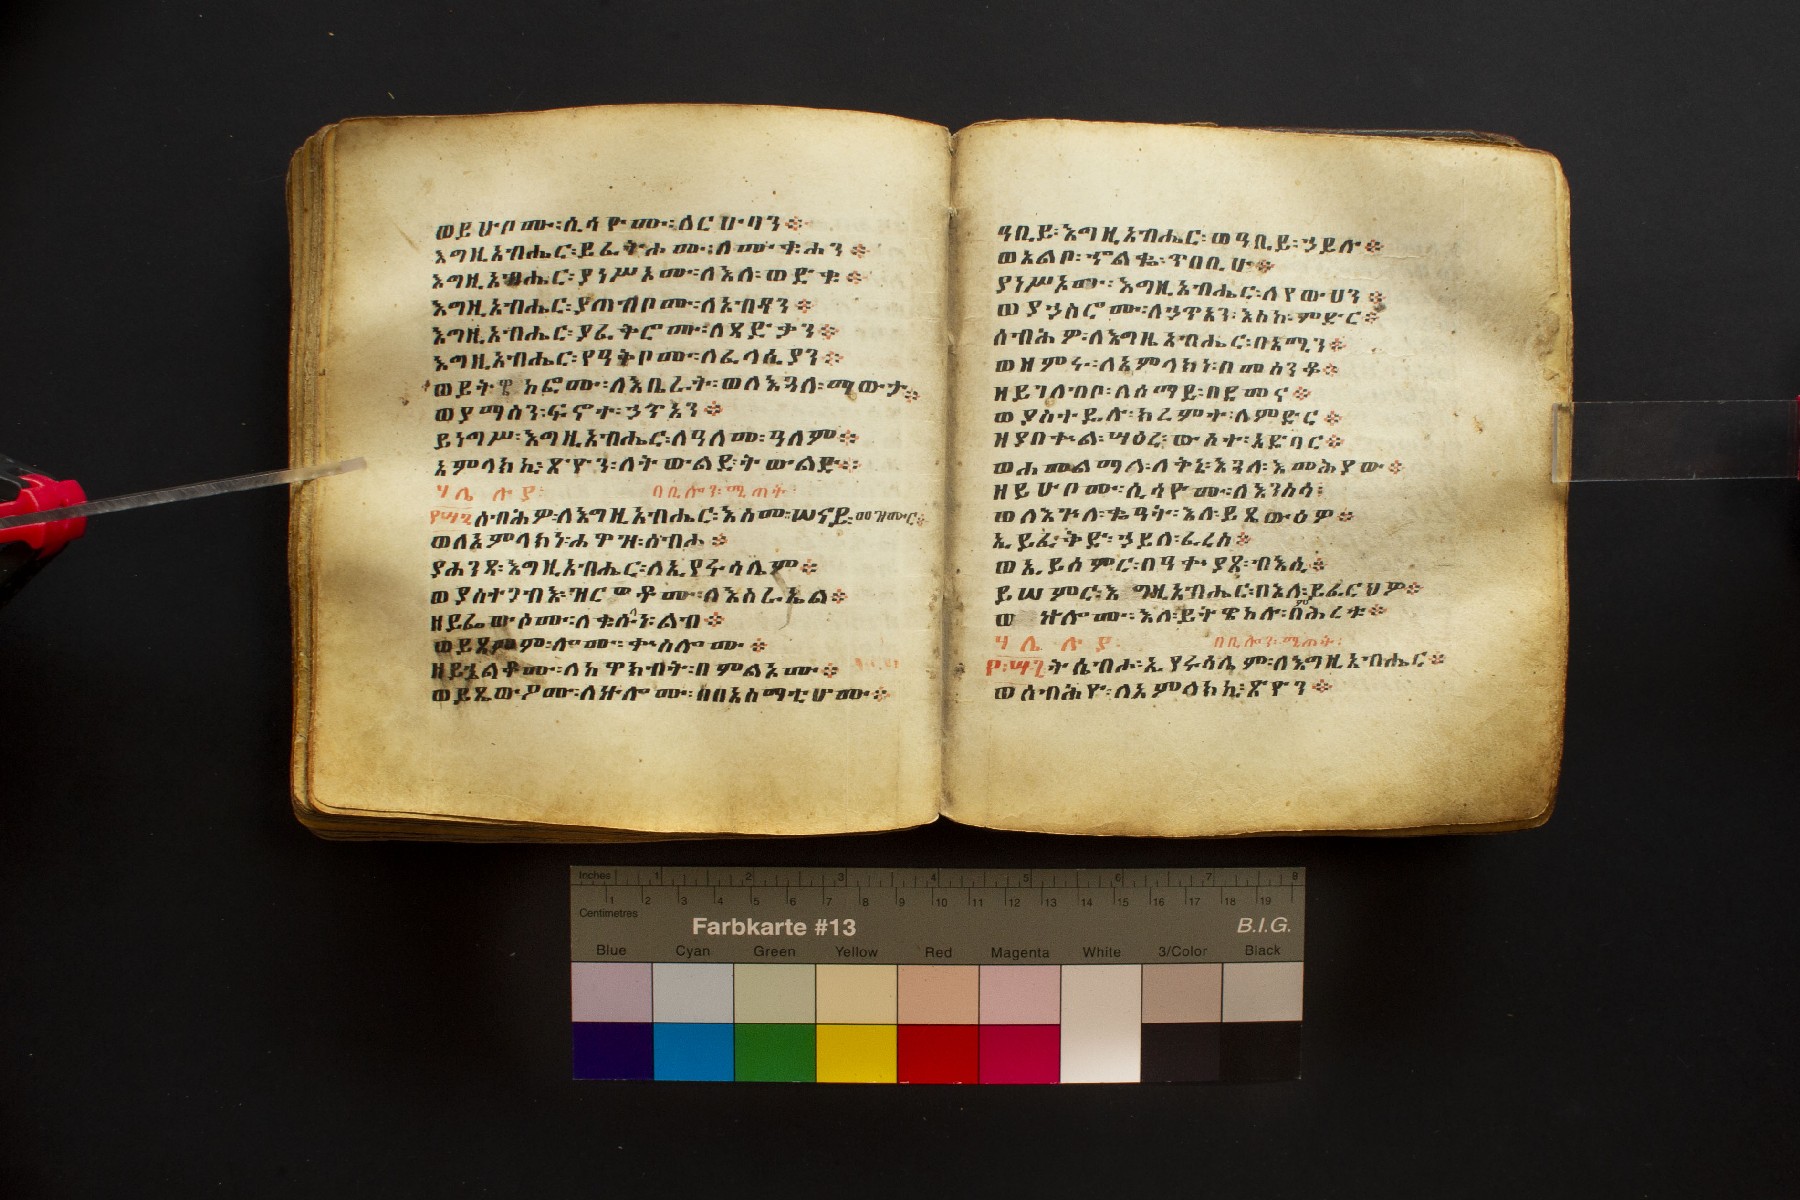 ወይሁቦሙ፡ሲሳዮሙ፡ለርሁባን፨
እግዚአብሔር፡ይፈትሖሙ፡ለሙቁሐን፨
እግዚአብሔር፡ያነሥኦሙ፡ለእለ፡ወድቁ፨
እግዚአብሔር፡ያጠብቦሙ፡ለአብዳን፨
እግዚአብሔር፡ያፈቅሮሙ፡ለጻድቃን፨
እግዚአብሔር፡የዓቅቦሙ፡ለፈላሲያን፨
ወይትዌከፎሙ፡ለእቤራት፡ወለእጓለ፡ማውታ፨
ወያማስን፡ፍኖተ፡ኃጥአን፨
ይነግሥ፡እግዚአብሔር፡ለዓለመ፡ዓለም፨
አምላክኪ፡ጽዮን፡ለትውልደ፡ትውልድ፨
ሃሌ ሉያ፡
በቢሎን፡ሚጠት፡
፻፵፮ ሰብሕዎ፡ለእግዚአብሔር፡እስመ፡ሠናይ፡መዝሙር፨
ወለአምላክነ፡ሐዋዝ፡ሰብሖ፨
ያሐንጻ፡እግዚአብሔር፡ለኢየሩሳሌም፨
ወያስተጋብእ፡ዝርወቶሙ፡ለእስራኤል፨
ዘይፌውሶሙ፡ለቁሱላነ፡ልብ፨
ወይጸምም፡ሎሙ፡ቍስሎሙ፨
ዘይኄልቆሙ፡ለከዋክብት፡በምልኦሙ፨
ወይጼውዖሙ፡ለኵሎሙ፡በበአስማቲሆሙ፨
ዓቢይ፡እግዚአብሔር፡ወዓቢይ፡ኃይሉ፨
ወአልቦ፡ኍልቈ፡ጥበቢሁ፨
ያነሥኦሙ፡እግዚአብሔር፡ለየውሃን፨
ወያኃስሮሙ፡ለኃጥአን፡እስከ፡ምድር፨
ሰብሕዎ፡ለእግዚአብሔር፡በአሚን፨
ወዘምሩ፡ለአምላክነ፡በመሰንቆ፨
ዘይገለብቦ፡ለሰማይ፡በደመና፨
ወያስተዴሉ፡ክረምተ፡ለምድር፨
ዘያበቍል፡ሣዕረ፡ውስተ፡አድባር፨
ወሐመልማለ፡ለቅኔ፡እጓለ፡እመሕያው፨
ዘይሁቦሙ፡ሲሳዮሙ፡ለእንስሳ፡
ወለእጕለ፡ቋዓት፡እለ፡ይጼውዕዎ፨
ኢይፈቅድ፡ኃይለ፡ፈረስ፨
ወኢይሰምር፡በዓተ፡ያጸ፡ብእሲ፨
ይሠምር፡እግዚአብሔር፡በእለ፡ይፈርህዎ፨
ወ ኵሎሙ፡እለ፡ይትዌከሉ፡በምሕረቱ፨
ሃ ሌ ሉ ያ፡
በቢሎን፡ሚጠት፡
፻፵፯ ትሴብሖ፡ኢየሩሳሌም፡ለእግዚአብሔር፨
ወሰብሕዮ፡ለአምላክኪ፡ጽዮን፨
Inches 1 2 3 4 5 6 7 8
1 2 3 4 5 6 7 8 9 10 11 12 13 14 15 16 17 18 19
Centimetres
Farbkarte #13 B.I.G.
Blue Cyan Green Yellow Red Magenta White 3/Color Black